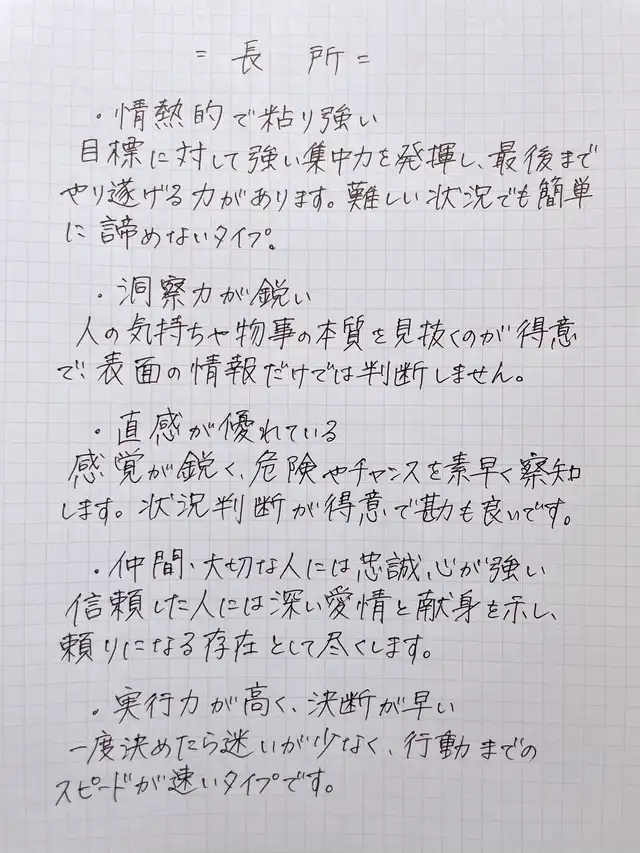 = 長 所 =
・情熱的で粘り強い
目標に対して強い集中力を発揮し、最後まで
やり遂げる力があります。難しい状況でも簡単
に諦めないタイプ。
・洞察力が鋭い
人の気持ちや物事の本質を見抜くのが得意
で、表面の情報だけでは判断しません。
・直感が優れている
感覚が鋭く、危険やチャンスを素早く察知
します。状況判断が得意で勘も良いです。
・仲間、大切な人には忠誠心が強い
信頼した人には深い愛情と献身を示し、
頼りになる存在として尽くします。
・実行力が高く、決断が早い
一度決めたら迷いが少なく、行動までの
スピードが速いタイプです。